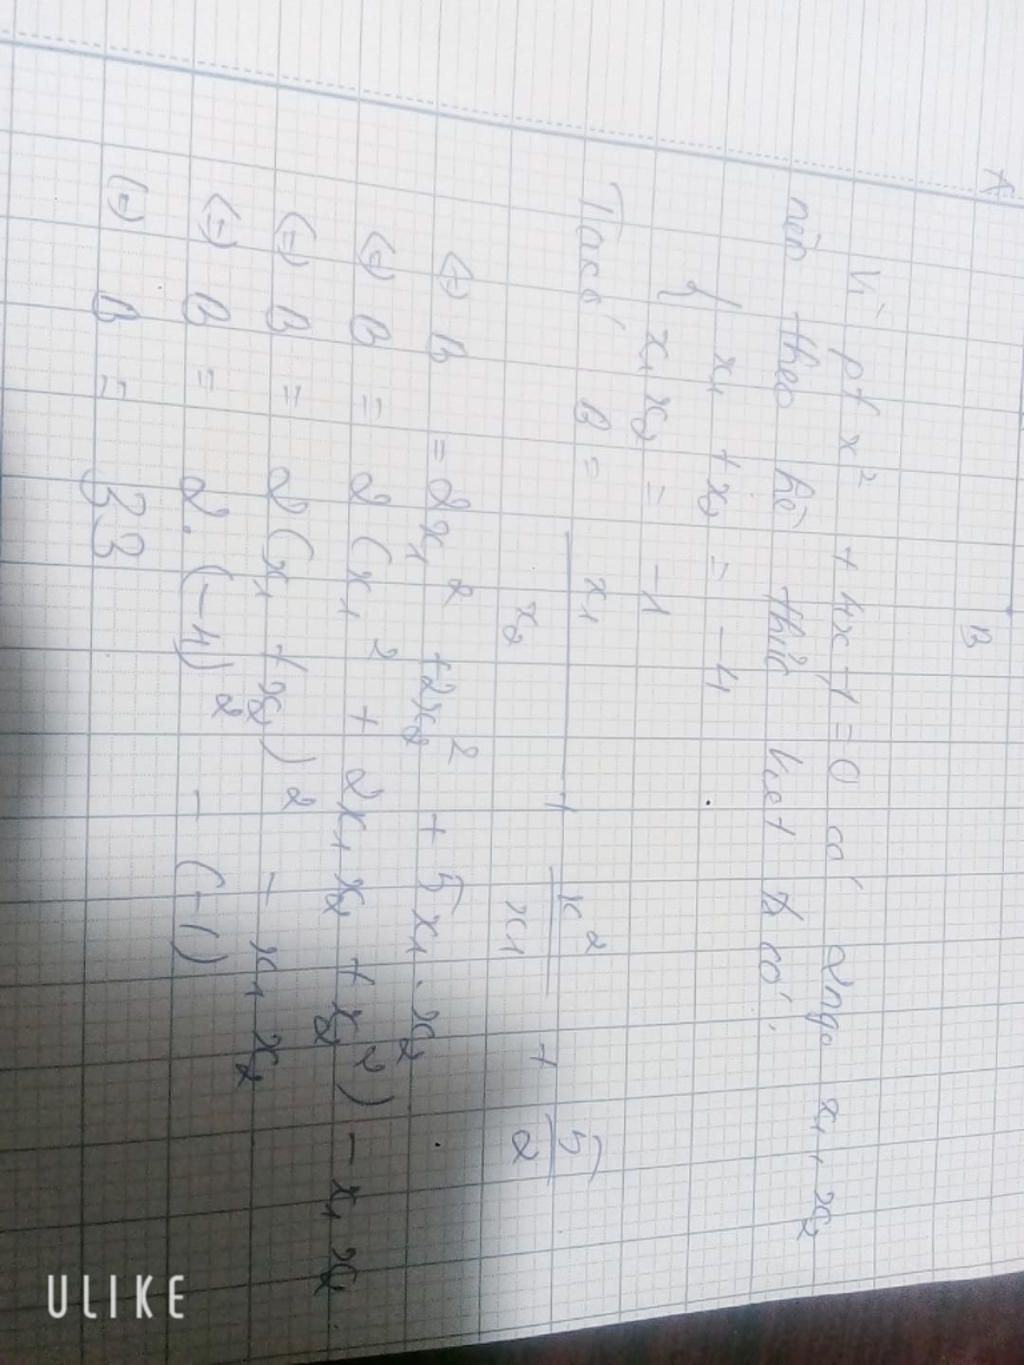 B
Vì pt x² + 4x - 1 = 0 có 2 ngo x₁, x₂
nên theo hệ thức Viet ta có:
{ x₁ + x₂ = -4
x₁x₂ = -1
Ta có B = x₁/x₂ + x₂/x₁ + 5/2
(=) B = 2x₁² + 2x₂² + 5x₁.x₂
(=) B = 2(x₁² + 2x₁x₂ + x₂²) - x₁x₂
(=) B = 2(x₁ + x₂)² - x₁x₂
(=) B = 2.(-4)² - (-1)
(=) B = 33
ULIKE